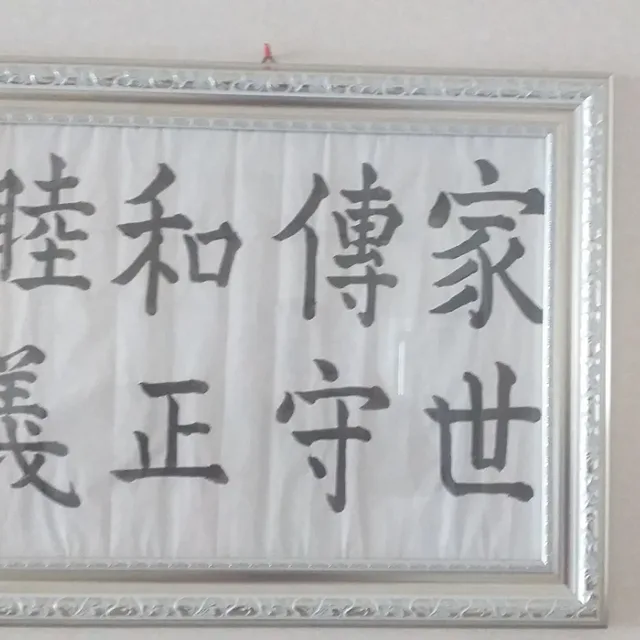 家世
傳守
和正
睦義